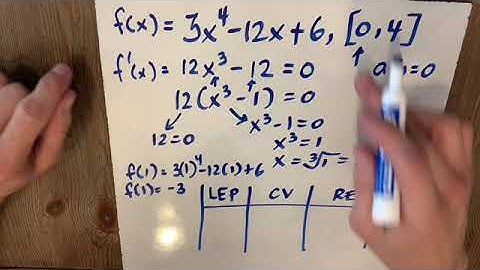 f(x) = 3x⁴ - 12x + 6, [0, 4]
f'(x) = 12x³ - 12 = 0
12(x³ - 1) = 0
12 = 0
x³ - 1 = 0
x³ = 1
x = ∛1 =
f(1) = 3(1)⁴ - 12(1) + 6
f(1) = -3
LEP CV